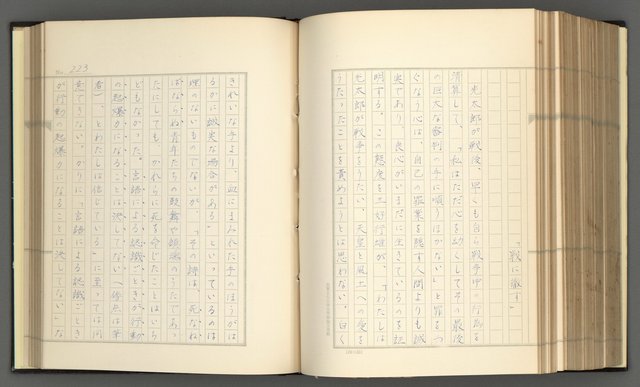 「戦に敵す」
光太郎が戦後、早くも自ら戦争中の行為を
清算して、「私はただ心を幼くしてその最後
の巨大な審判の手に順うほかない」と罪をつ
ぐなう心は、自己の罪業を隠す人間よりも誠
実であり、良心がいまだに生きているのを証
明する。この態度を三好行雄が、「わたしは
光太郎が戦争をうたい、天皇と風土への愛を
うたったことを責めようとは思わない。曰く
No. 223
きれいな手より、血にまみれた手のほうがは
るかに誠実な場合がある」といっているのは
理のないものでないが、「その詩は、死なね
ばならぬ青年たちの鼓舞や鎮魂のうたであっ
たにしても、かれらに死を命じたことはいち
どもなかった。言語による認識ごときが行動
の起爆力になることは決してない（傍点は筆
者）、とわたしは信じている」に至っては同
意できない。かりに「言語による認識ごとき
が行動の起爆力になることは決してない」な